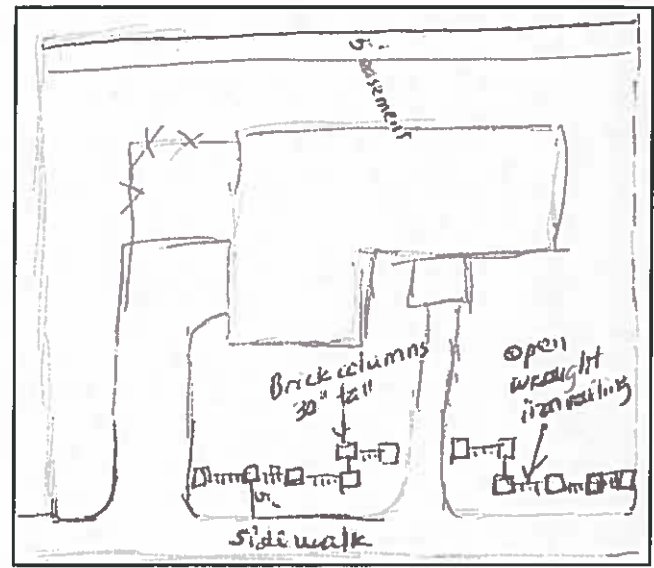 5'
easement
Brick columns
30" tall
open
wrought
iron railing
5'
sidewalk